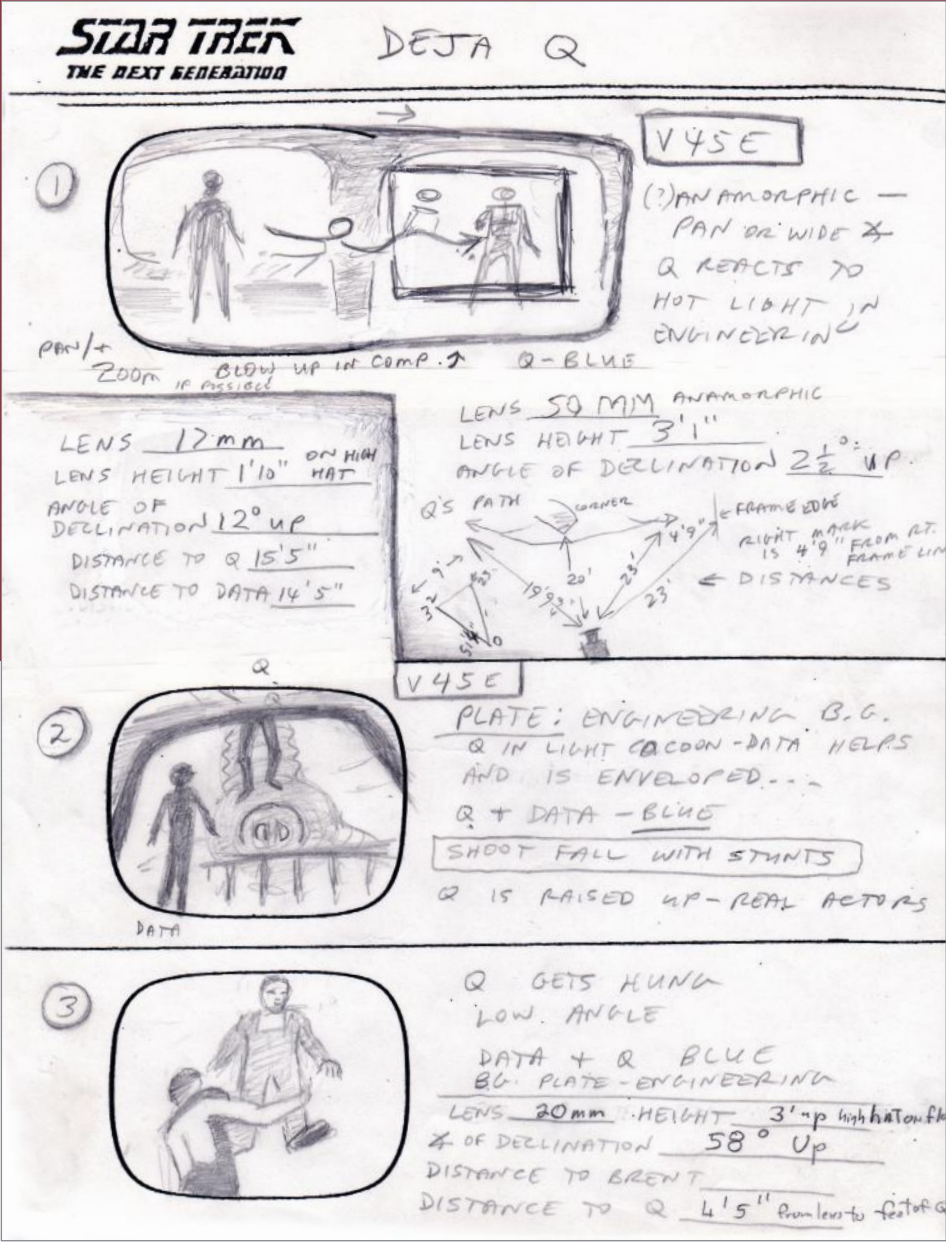 STAR TREK
THE NEXT GENERATION
DEJA Q
1
V45E
(?) ANAMORPHIC —
PAN OR WIDE ∡
Q REACTS TO
HOT LIGHT IN
ENGINEERING
PAN/+
ZOOM
IF POSSIBLE
BLOW UP IN COMP. ↑
Q-BLUE
LENS 17mm
LENS HEIGHT 1'10" ON HIGH HAT
ANGLE OF
DECLINATION 12° UP
DISTANCE TO Q 15'5"
DISTANCE TO DATA 14'5"
LENS 50 MM ANAMORPHIC
LENS HEIGHT 3'1"
ANGLE OF DECLINATION 2 1/2° UP.
Q'S PATH
CORNER
4'9"
← FRAME EDGE
RIGHT MARK
IS 4'9" FROM RT.
FRAME LIN
20'
23'
23'
← DISTANCES
Q
V45E
2
DATA
PLATE: ENGINEERING B.G.
Q IN LIGHT COCOON-DATA HELPS
AND IS ENVELOPED...
Q + DATA - BLUE
SHOOT FALL WITH STUNTS
Q IS RAISED UP - REAL ACTORS
3
Q GETS HUNG
LOW. ANGLE
DATA + Q BLUE
BG. PLATE - ENGINEERING
LENS 20mm HEIGHT 3' up high hat on fl
∡ OF DECLINATION 58° Up
DISTANCE TO BRENT
DISTANCE TO Q 4'5" from lens to feet of Q